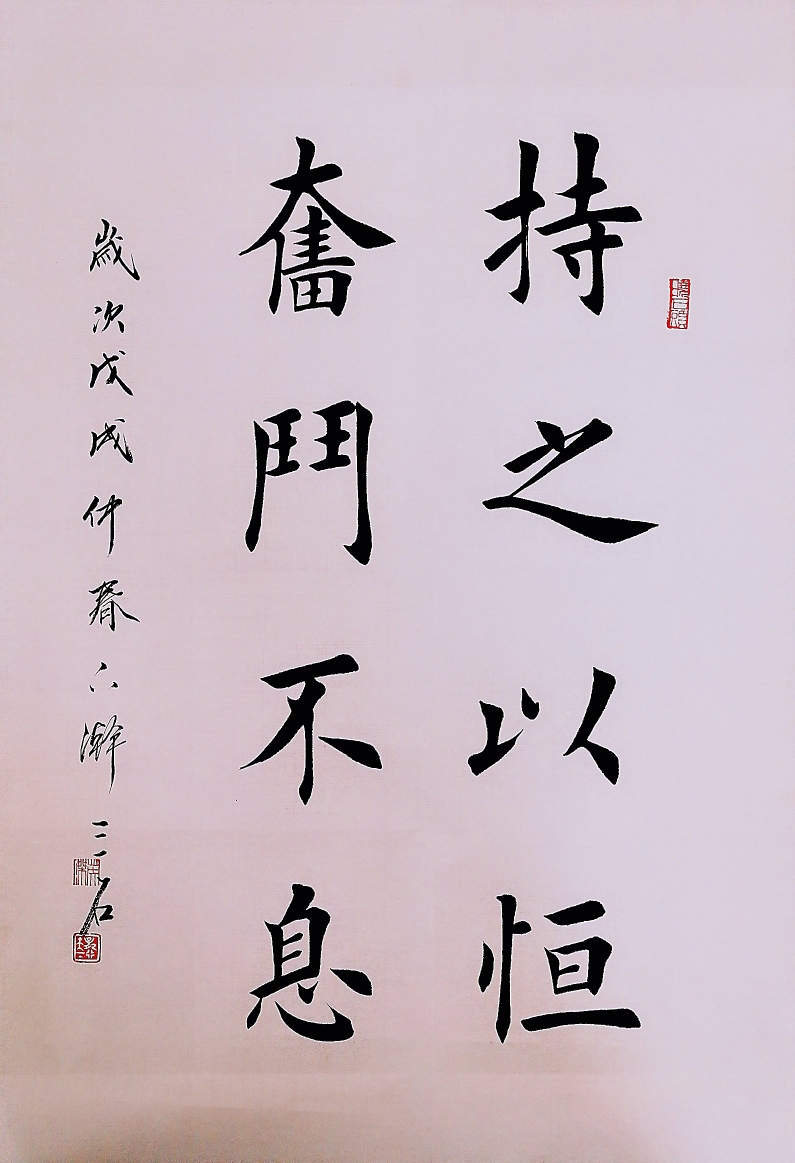 持之以恒
奮鬥不息
歲次戊戌仲春六瀚三石